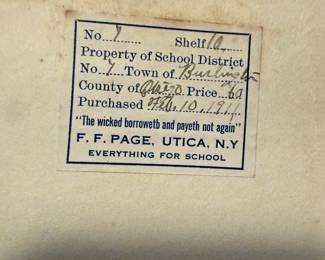 No 7 Shelf 10
Property of School District
No. 7 Town of Burlington
County of Otsego Price 60
Purchased Feb. 10. 1911
"The wicked borroweth and payeth not again"
F. F. PAGE, UTICA, N.Y
EVERYTHING FOR SCHOOL